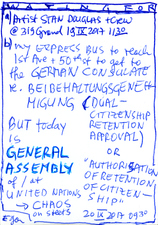 WAITING FOR
a) Artist STAN DOUGLAS + Crew
@ 315 Grand 19 IX 2017 11:30
b) my EXPRESS BUS to reach
1st Ave + 50th st to get to
the GERMAN CONSULATE
re. BEIBEHALTUNGSGENEH
MIGUNG (DUAL-
CITIZENSHIP
RETENTION
APPROVAL)
BUT today
is
GENERAL
ASSEMBLY
of / at
UNITED NATIONS
→ CHAOS
on streets
OR
"AUTHORISATION
OF RETENTION
OF CITIZEN-
SHIP"
20 IX 2017 09:30